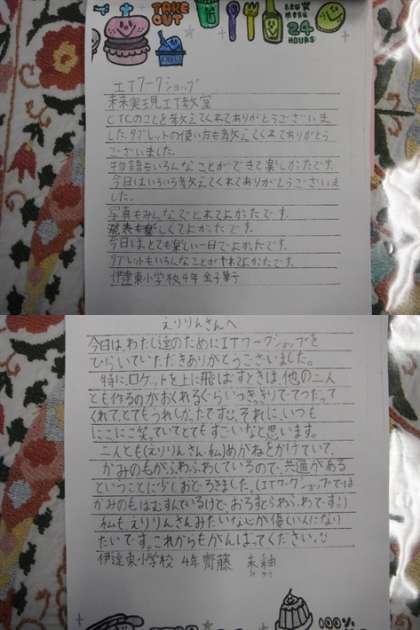 TAKE OUT
24
HOURS
ITワークショップ
未来実現IT教室
CTCのことを教えてくれてありがとうございま
した。タブレットの使い方も教えてくれてありがとう
ございました。
物語もいろんなことができて楽しかったです。
今日はいろいろ教えてくれてありがとうございま
した。
写真もみんなでとれてよかったです。
発表も楽しくてよかったです。
今日はとても楽しい一日でよかったです。
タブレットもいろんなことがやれてよかったです。
伊達東小学校4年 金子
えりりんさんへ
今日は、わたし達のためにITワークショップを
ひらいていただきありがとうございました。
特に、ロケットを上に飛ばすときは、他の二人
とも作るのがおくれるぐらいつきっきりでてつだって
くれて、とてもうれしかったです。それに、いつも
にこにこ笑っていてとてもすごいなと思います。
二人とも(えりりんさん・私)めがねをかけていて、
かみのもがふわふわしているので、共通がある
ということに少しおどろきました。(ITワークショップでは
かみのもはむすんでいるけど、おろすとふわふわです!)
私も えりりんさんみたいな心が優しい人になり
たいです。これからもがんばってください。
伊達東小学校 4年 齊藤
100%